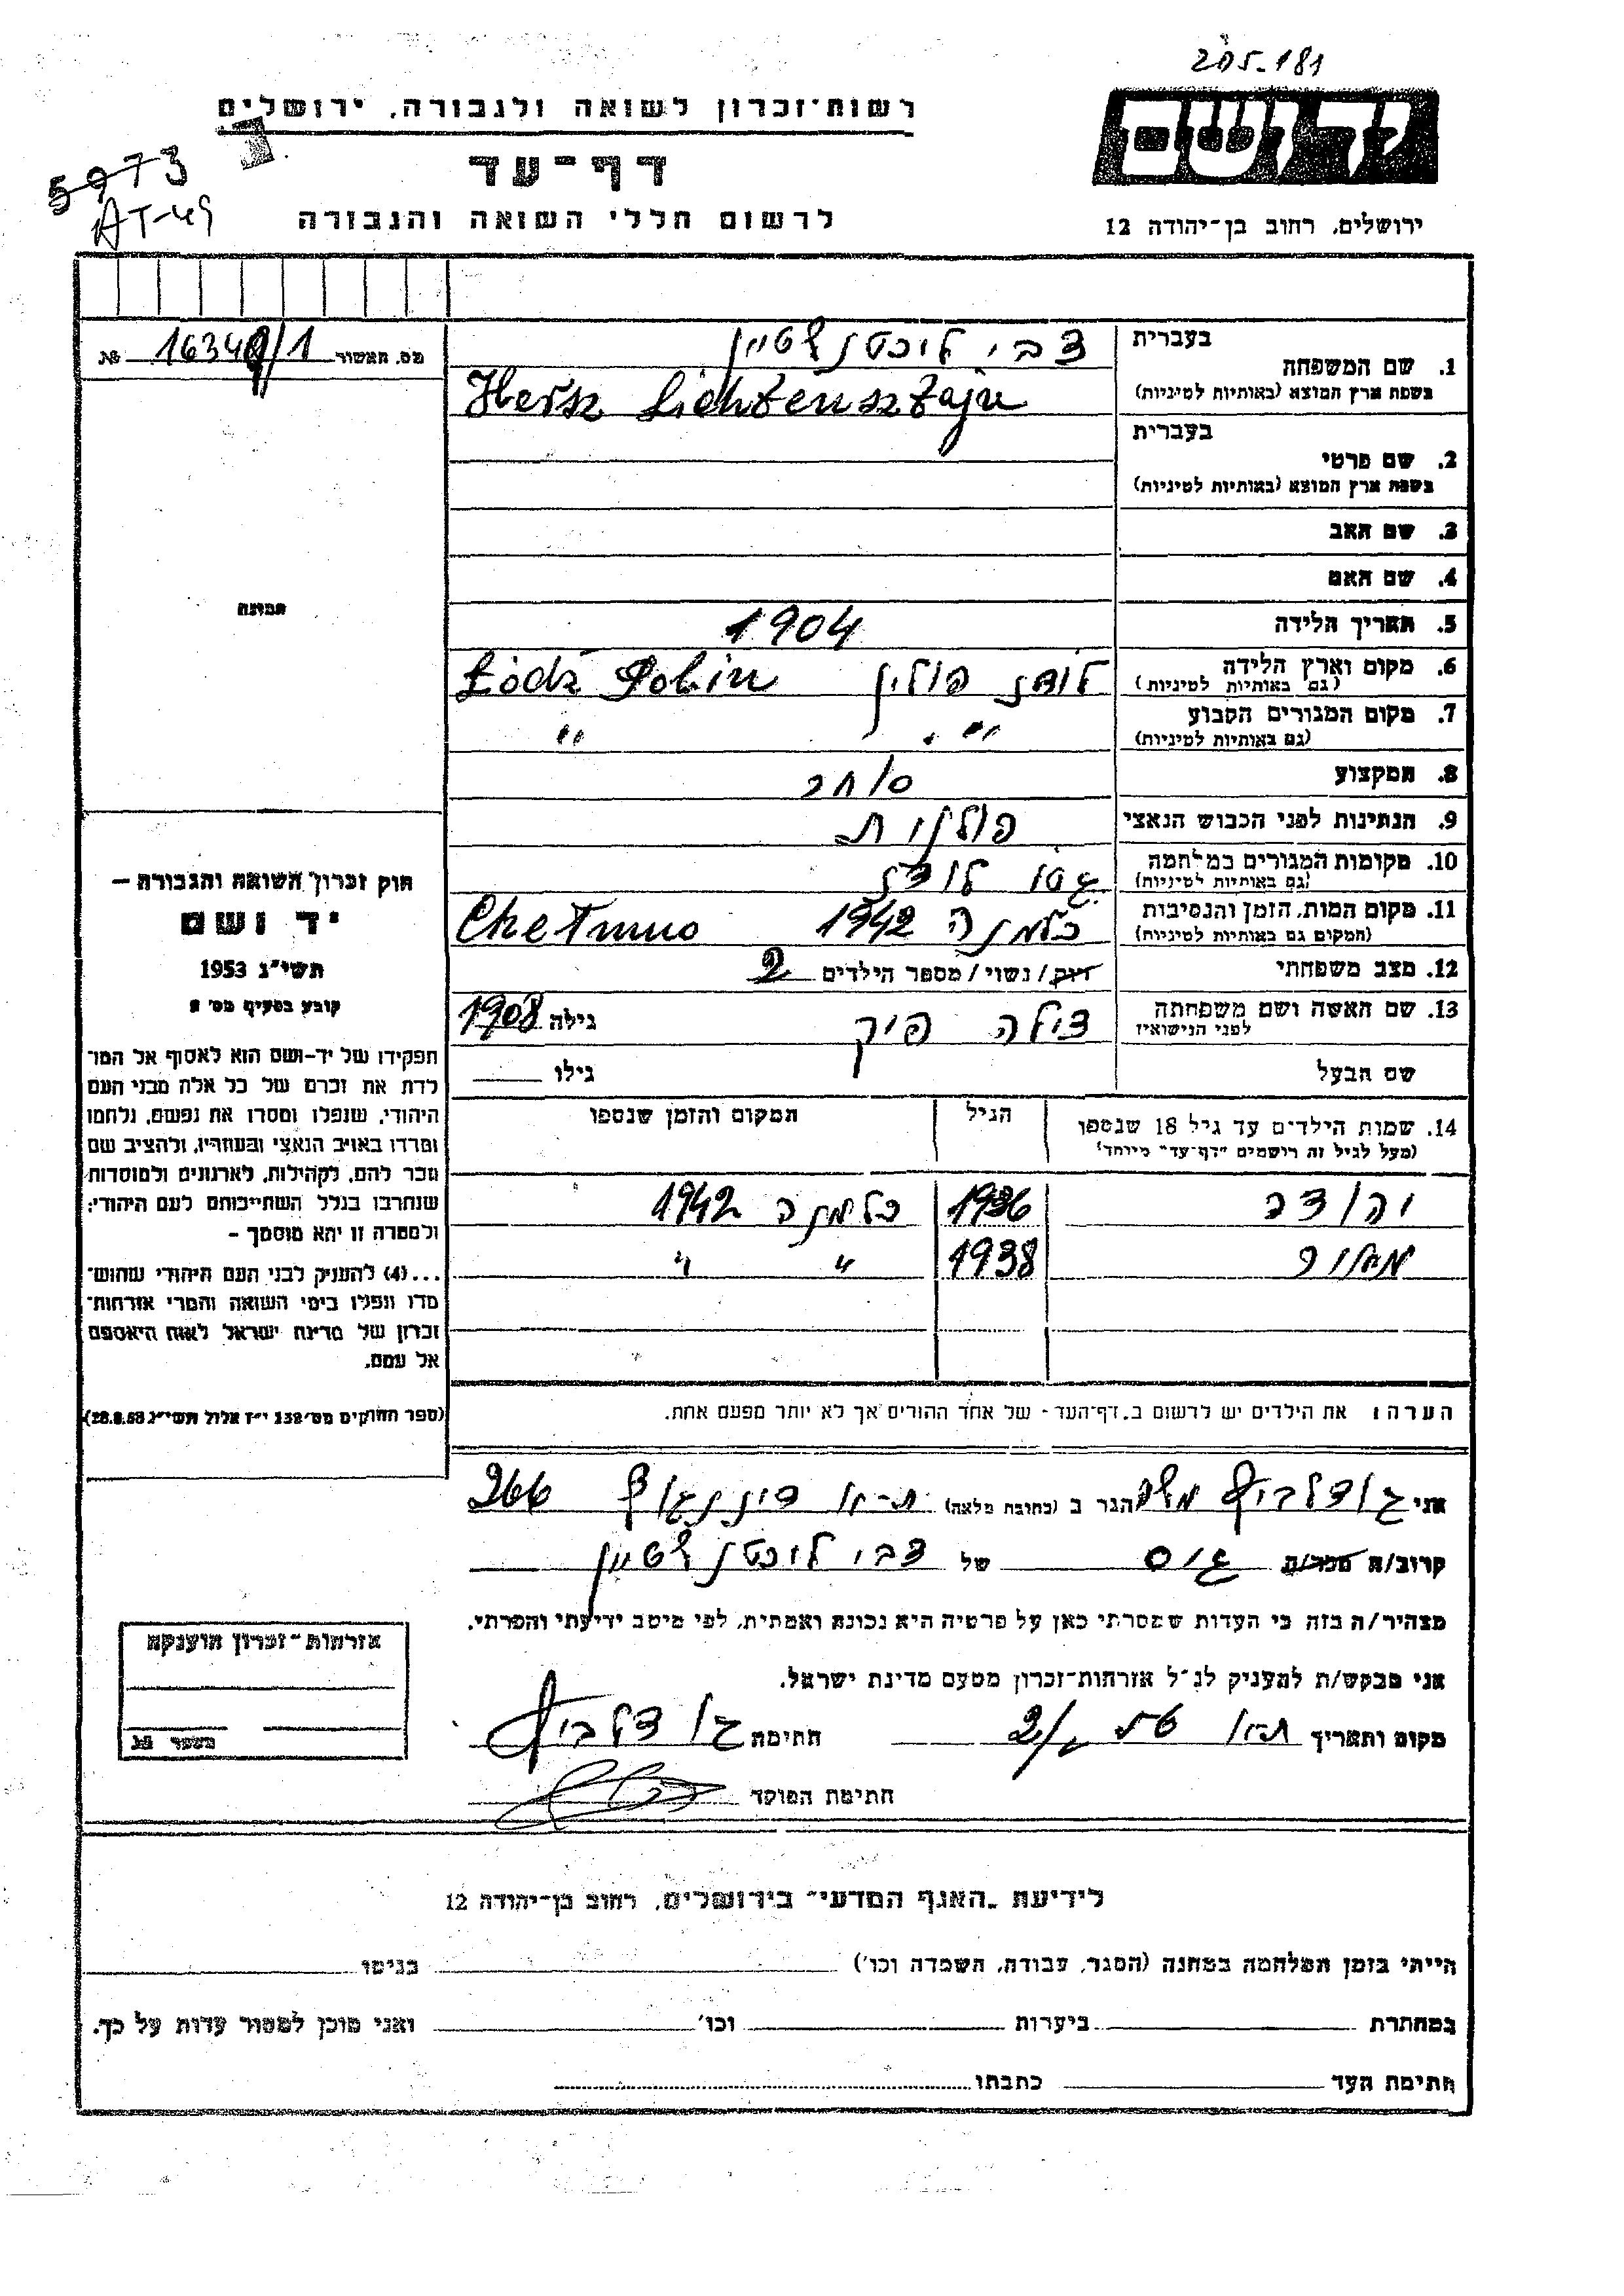 205.181
רשות־זכרון לשואה ולגבורה, ירושלים
יד ושם
5973
דף־עד
AT-49
לרשום חללי השואה והגבורה
ירושלים, רחוב בן־יהודה 12
בעברית
צבי ליכטנשטיין
1. שם המשפחה
בשפת ארץ המוצא (באותיות לטיניות)
Hersz Lichtensztajn
מס. האשור 16348/1 №
בעברית
2. שם פרטי
בשפת ארץ המוצא (באותיות לטיניות)
3. שם האב
4. שם האם
תמונה
5. תאריך הלידה 1904
6. מקום וארץ הלידה
(גם באותיות לטיניות)
לודז פולין Łódź Polin
7. מקום המגורים הקבוע
(גם באותיות לטיניות)
" "
8. המקצוע סוחר
9. הנתינות לפני הכבוש הנאצי פולנית
10. מקומות המגורים במלחמה
(גם באותיות לטיניות)
גטו לודז
11. מקום המות, הזמן והנסיבות
(המקום גם באותיות לטיניות)
כלמנה 1942 Chełmno
12. מצב משפחתי רווק / נשוי / מספר הילדים 2
13. שם האשה ושם משפחתה
לפני הנישואין
צילה פיק גילה 1908
שם הבעל גילו
14. שמות הילדים עד גיל 18 שנספו
(מעל לגיל זה רושמים "דף־עד" מיוחד)
הגיל
המקום והזמן שנספו
1936 כלמנה 1942
1938 " "
הערה: את הילדים יש לרשום ב„דף־העד" של אחד ההורים אך לא יותר מפעם אחת.
חוק זכרון השואה והגבורה –
יד ושם
תשי"ג 1953
קובע בסעיף מס' 2
תפקידו של יד-ושם הוא לאסוף אל המו־
לדת את זכרם של כל אלה מבני העם
היהודי, שנפלו ומסרו את נפשם, נלחמו
ומרדו באויב הנאצי ובעוזריו, ולהציב שם
וזכר להם, לקהילות, לארגונים ולמוסדות
שנחרבו בגלל השתייכותם לעם היהודי;
ולמטרה זו יהא מוסמך –
...(4) להעניק לבני העם היהודי שהוש־
מדו ונפלו בימי השואה והמרי אזרחות־
זכרון של מדינת ישראל לאות היאספם
אל עמם.
(ספר החוקים מס' 132 י"ז אלול תשי"ג 28.8.53)
אני גודלביץ משה הגר ב (כתובת מלאה) ת־א דיזנגוף 266
קרוב/ה מכר/ה גיס של צבי ליכטנשטיין
מצהיר/ה בזה כי העדות שמסרתי כאן על פרטיה היא נכונה ואמתית, לפי מיטב ידיעתי והכרתי.
אני מבקש/ת להעניק לנ"ל אזרחות־זכרון מטעם מדינת ישראל.
מקום ותאריך ת־א חתימה גודלביץ
חתימת הפוקד
אזרחות־זכרון הוענקה
מספר №
לידיעת „האגף המדעי" בירושלים, רחוב בן־יהודה 12
הייתי בזמן המלחמה במחנה (הסגר, עבודה, השמדה וכו') בגיטו
במחתרת ביערות וכו' ואני מוכן למסור עדות על כך.
חתימת העד כתבתו